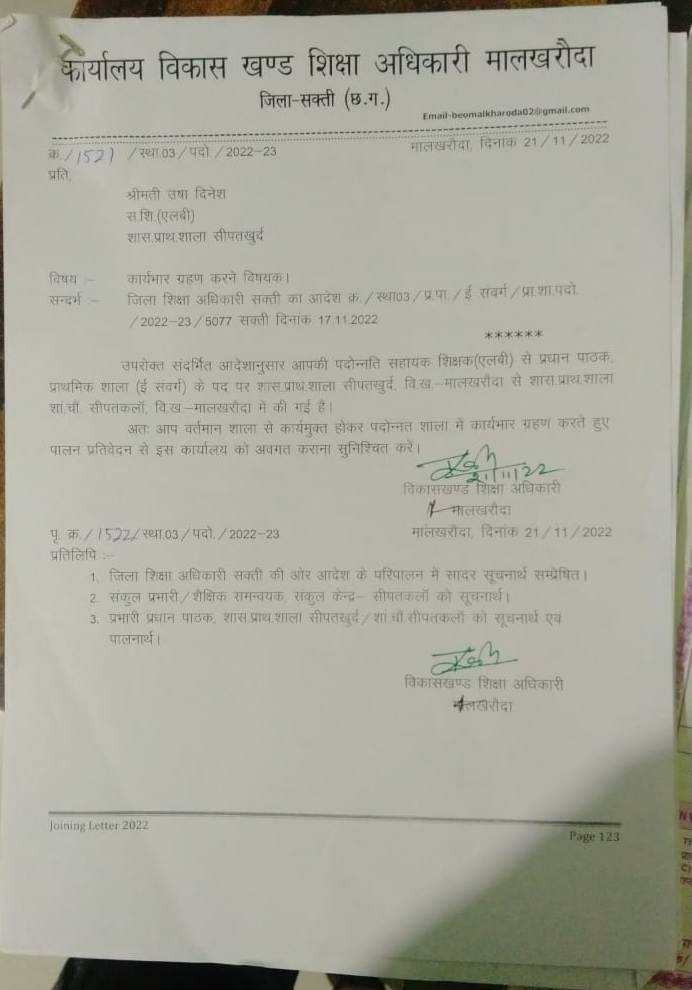 कार्यालय विकास खण्ड शिक्षा अधिकारी मालखरौदा
जिला-सक्ती (छ.ग.)
Email-beomalkharoda02@gmail.com
क्र./1521/स्था.03/पदो./2022-23 मालखरौदा, दिनांक 21/11/2022
प्रति,
श्रीमती उषा दिनेश
स.शि.(एलबी)
शास.प्राथ.शाला सीपतखुर्द
विषय :- कार्यभार ग्रहण करने विषयक।
सन्दर्भ :- जिला शिक्षा अधिकारी सक्ती का आदेश क्र./स्था03/प्र.पा./ई संवर्ग/प्रा.शा.पदो.
/2022-23/5077 सक्ती दिनांक 17.11.2022
******
उपरोक्त संदर्भित आदेशानुसार आपकी पदोन्नति सहायक शिक्षक(एलबी) से प्रधान पाठक,
प्राथमिक शाला (ई संवर्ग) के पद पर शास.प्राथ.शाला सीपतखुर्द, वि.ख.-मालखरौदा से शास.प्राथ.शाला
शां.चौं. सीपतकलॉ, वि.ख.-मालखरौदा में की गई है।
अतः आप वर्तमान शाला से कार्यमुक्त होकर पदोन्नत शाला में कार्यभार ग्रहण करते हुए
पालन प्रतिवेदन से इस कार्यालय को अवगत कराना सुनिश्चित करें।
21/11/22
विकासखण्ड शिक्षा अधिकारी
मालखरौदा
पृ. क्र./1522/स्था.03/पदो./2022-23 मालखरौदा, दिनांक 21/11/2022
प्रतिलिपि :-
1. जिला शिक्षा अधिकारी सक्ती की ओर आदेश के परिपालन में सादर सूचनार्थ सम्प्रेषित।
2. संकुल प्रभारी/शैक्षिक समन्वयक, संकुल केन्द्र- सीपतकलॉ को सूचनार्थ।
3. प्रभारी प्रधान पाठक, शास.प्राथ.शाला सीपतखुर्द/शां.चौं.सीपतकलॉ को सूचनार्थ एवं
पालनार्थ।
विकासखण्ड शिक्षा अधिकारी
मालखरौदा
Joining Letter 2022
Page 123